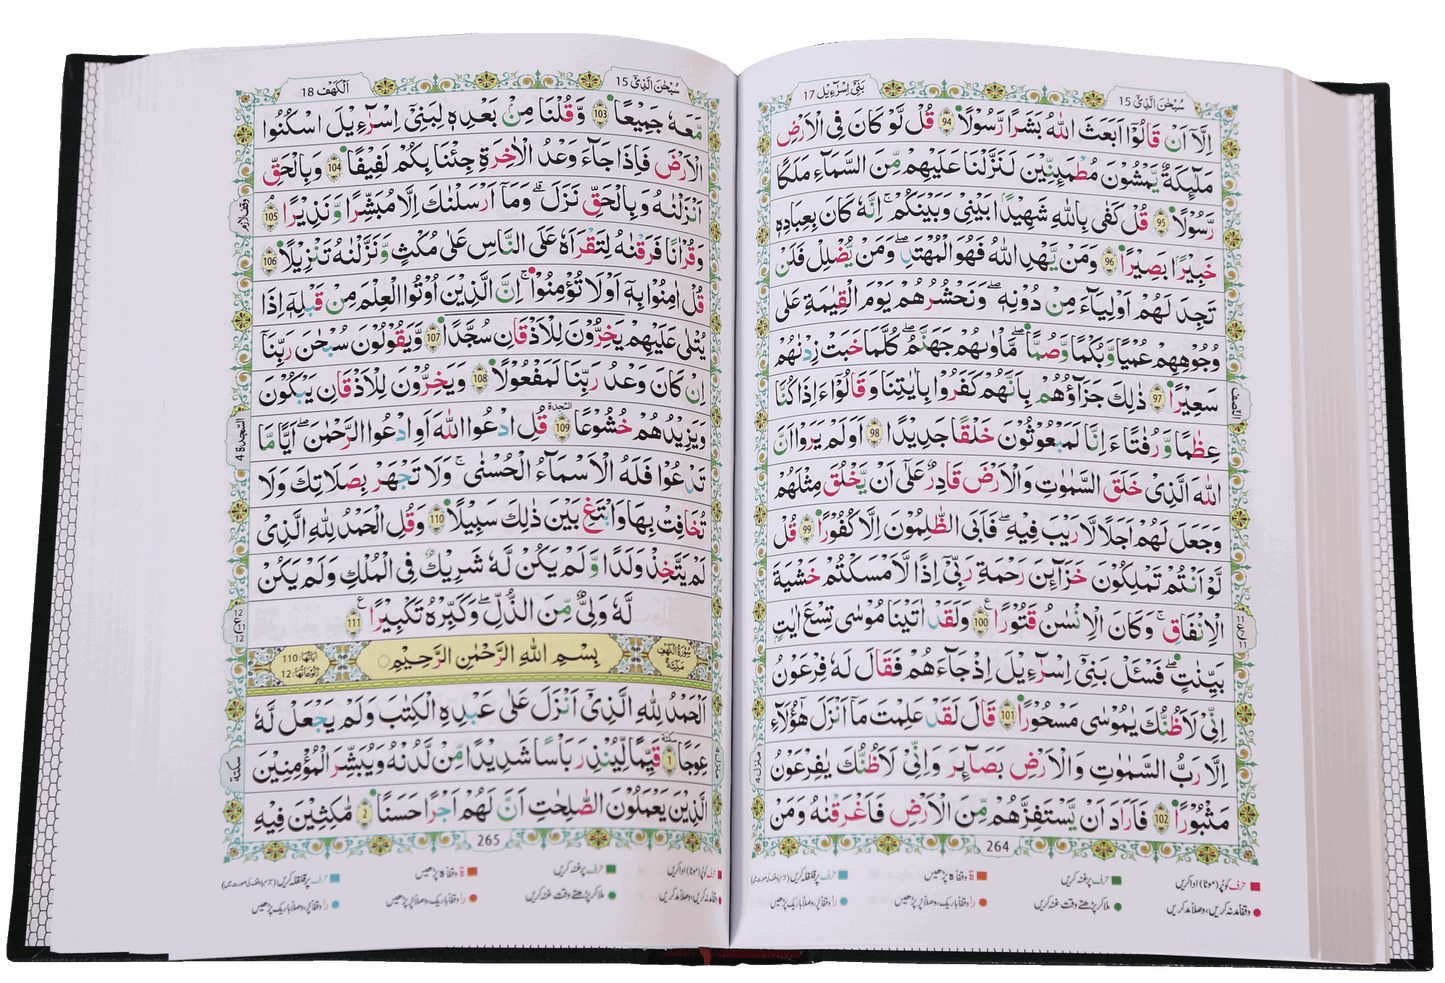 سُبْحٰنَ الَّذِىْٓ 15
بَنِىْٓ اِسْرَآءِيْل 17
اِلَّاۤ اَنْ قَالُوْۤا اَبَعَثَ اللّٰهُ بَشَرًا رَّسُوْلًا 94 قُلْ لَّوْ كَانَ فِى الْاَرْضِ
مَلٰٓئِكَةٌ يَّمْشُوْنَ مُطْمَئِنِّيْنَ لَنَزَّلْنَا عَلَيْهِمْ مِّنَ السَّمَآءِ مَلَكًا
رَّسُوْلًا 95 قُلْ كَفٰى بِاللّٰهِ شَهِيْدًۢا بَيْنِىْ وَبَيْنَكُمْ ؕ اِنَّهٗ كَانَ بِعِبَادِهٖ
خَبِيْرًۢا بَصِيْرًا 96 وَمَنْ يَّهْدِ اللّٰهُ فَهُوَ الْمُهْتَدِ ۚ وَمَنْ يُّضْلِلْ فَلَنْ
تَجِدَ لَهُمْ اَوْلِيَآءَ مِنْ دُوْنِهٖ ؕ وَنَحْشُرُهُمْ يَوْمَ الْقِيٰمَةِ عَلٰى
وُجُوْهِهِمْ عُمْيًا وَّبُكْمًا وَّصُمًّا ؕ مَاْوٰٮهُمْ جَهَنَّمُ ؕ كُلَّمَا خَبَتْ زِدْنٰهُمْ
سَعِيْرًا 97 ذٰلِكَ جَزَآؤُهُمْ بِاَنَّهُمْ كَفَرُوْا بِاٰيٰتِنَا وَقَالُوْٓا ءَاِذَا كُنَّا
عِظٰمًا وَّرُفٰتًا ءَاِنَّا لَمَبْعُوْثُوْنَ خَلْقًا جَدِيْدًا 98 اَوَلَمْ يَرَوْا اَنَّ
اللّٰهَ الَّذِىْ خَلَقَ السَّمٰوٰتِ وَالْاَرْضَ قَادِرٌ عَلٰٓى اَنْ يَّخْلُقَ مِثْلَهُمْ
وَجَعَلَ لَهُمْ اَجَلًا لَّا رَيْبَ فِيْهِ ؕ فَاَبَى الظّٰلِمُوْنَ اِلَّا كُفُوْرًا 99 قُلْ
لَّوْ اَنْتُمْ تَمْلِكُوْنَ خَزَآئِنَ رَحْمَةِ رَبِّىْٓ اِذًا لَّاَمْسَكْتُمْ خَشْيَةَ
الْاِنْفَاقِ ؕ وَكَانَ الْاِنْسٰنُ قَتُوْرًا 100 وَلَقَدْ اٰتَيْنَا مُوْسٰى تِسْعَ اٰيٰتٍۭ
بَيِّنٰتٍ ۖ فَسْـَٔلْ بَنِىْٓ اِسْرَآءِيْلَ اِذْ جَآءَهُمْ فَقَالَ لَهٗ فِرْعَوْنُ
اِنِّىْ لَاَظُنُّكَ يٰمُوْسٰى مَسْحُوْرًا 101 قَالَ لَقَدْ عَلِمْتَ مَاۤ اَنْزَلَ هٰٓؤُلَآءِ
اِلَّا رَبُّ السَّمٰوٰتِ وَالْاَرْضِ بَصَآئِرَ ۚ وَاِنِّىْ لَاَظُنُّكَ يٰفِرْعَوْنُ
مَثْبُوْرًا 102 فَاَرَادَ اَنْ يَّسْتَفِزَّهُمْ مِّنَ الْاَرْضِ فَاَغْرَقْنٰهُ وَمَنْ
264
حرف کو پُر (موٹا) ادا کریں
حرف پر غنہ کریں
ۃ وقفاً ہ پڑھیں
حرف پر قلقلہ کریں
وقفاً مد نہ کریں، وصلاً مد کریں
ملا کر پڑھتے وقت غنہ کریں
را وقفاً باریک، وصلاً پُر پڑھیں
را وقفاً پُر، وصلاً باریک پڑھیں
سُبْحٰنَ الَّذِىْٓ 15
اَلْكَهْف 18
مَّعَهٗ جَمِيْعًا 103 وَّقُلْنَا مِنْۢ بَعْدِهٖ لِبَنِىْٓ اِسْرَآءِيْلَ اسْكُنُوا
الْاَرْضَ فَاِذَا جَآءَ وَعْدُ الْاٰخِرَةِ جِئْنَا بِكُمْ لَفِيْفًا 104 وَبِالْحَقِّ
اَنْزَلْنٰهُ وَبِالْحَقِّ نَزَلَ ؕ وَمَاۤ اَرْسَلْنٰكَ اِلَّا مُبَشِّرًا وَّنَذِيْرًا 105
وَقُرْاٰنًا فَرَقْنٰهُ لِتَقْرَاَهٗ عَلَى النَّاسِ عَلٰى مُكْثٍ وَّنَزَّلْنٰهُ تَنْزِيْلًا 106
قُلْ اٰمِنُوْا بِهٖۤ اَوْ لَا تُؤْمِنُوْا ؕ اِنَّ الَّذِيْنَ اُوْتُوا الْعِلْمَ مِنْ قَبْلِهٖۤ اِذَا
يُتْلٰى عَلَيْهِمْ يَخِرُّوْنَ لِلْاَذْقَانِ سُجَّدًا 107 وَّيَقُوْلُوْنَ سُبْحٰنَ رَبِّنَاۤ
اِنْ كَانَ وَعْدُ رَبِّنَا لَمَفْعُوْلًا 108 وَيَخِرُّوْنَ لِلْاَذْقَانِ يَبْكُوْنَ
وَيَزِيْدُهُمْ خُشُوْعًا 109 قُلِ ادْعُوا اللّٰهَ اَوِ ادْعُوا الرَّحْمٰنَ ؕ اَيًّا مَّا
تَدْعُوْا فَلَهُ الْاَسْمَآءُ الْحُسْنٰى ۚ وَلَا تَجْهَرْ بِصَلَاتِكَ وَلَا
تُخَافِتْ بِهَا وَابْتَغِ بَيْنَ ذٰلِكَ سَبِيْلًا 110 وَقُلِ الْحَمْدُ لِلّٰهِ الَّذِىْ
لَمْ يَتَّخِذْ وَلَدًا وَّلَمْ يَكُنْ لَّهٗ شَرِيْكٌ فِى الْمُلْكِ وَلَمْ يَكُنْ
لَّهٗ وَلِىٌّ مِّنَ الذُّلِّ ؕ وَكَبِّرْهُ تَكْبِيْرًا 111
سُوْرَةُ الْكَهْفِ مَكِّيَّةٌ
بِسْمِ اللّٰهِ الرَّحْمٰنِ الرَّحِيْمِ
اٰيَاتُهَا: 110
رُكُوْعَاتُهَا: 12
اَلْحَمْدُ لِلّٰهِ الَّذِىْٓ اَنْزَلَ عَلٰى عَبْدِهِ الْكِتٰبَ وَلَمْ يَجْعَلْ لَّهٗ
عِوَجًا 1 قَيِّمًا لِّيُنْذِرَ بَاْسًا شَدِيْدًا مِّنْ لَّدُنْهُ وَيُبَشِّرَ الْمُؤْمِنِيْنَ
الَّذِيْنَ يَعْمَلُوْنَ الصّٰلِحٰتِ اَنَّ لَهُمْ اَجْرًا حَسَنًا 2 مَّاكِثِيْنَ فِيْهِ
265
حرف پر غنہ کریں
ۃ وقفاً ہ پڑھیں
حرف پر قلقلہ کریں
ملا کر پڑھتے وقت غنہ کریں